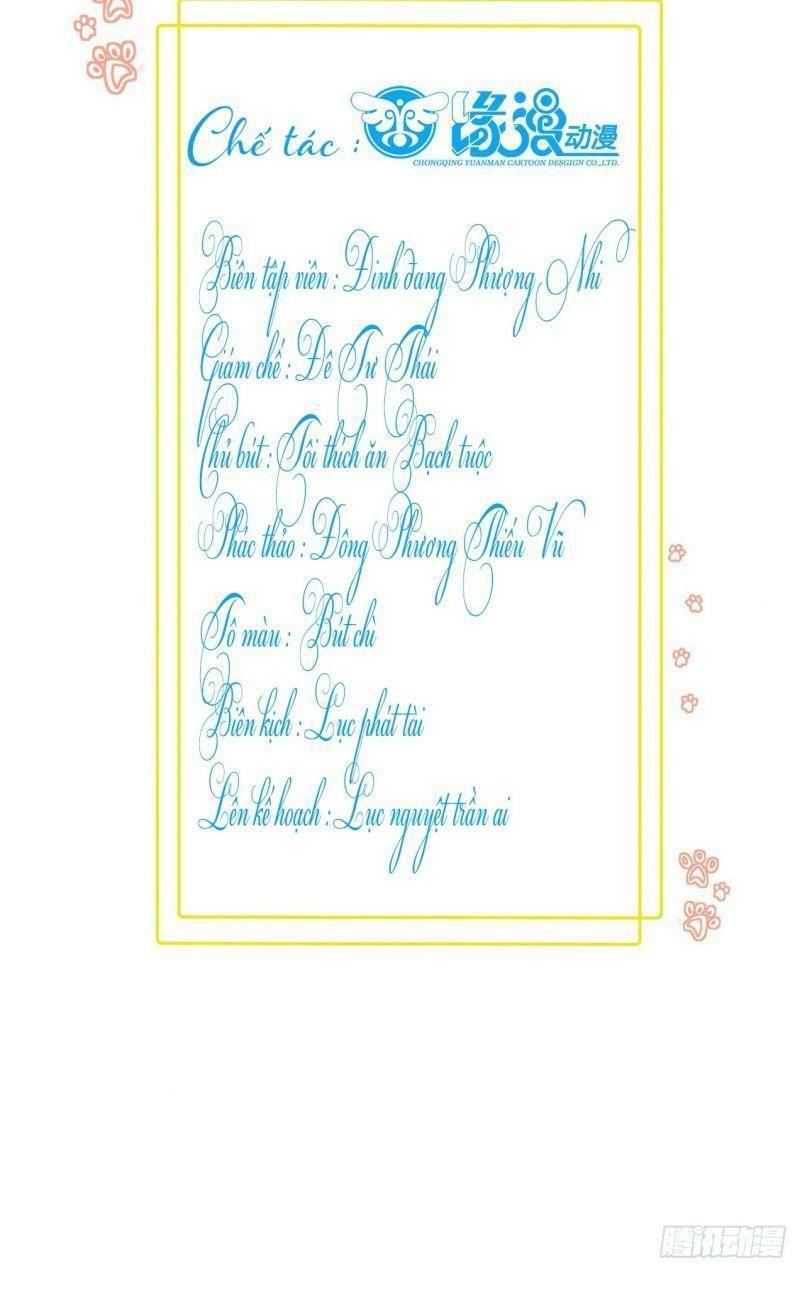 Chế tác : 缘漫动漫
CHONGQING YUANMAN CARTOON DESGIGN CO.,LTD.
Biên tập viên : Đinh đang Phượng Nhi
Giám chế : Đê Tư Thái
Chủ bút : Tôi thích ăn Bạch tuộc
Phác thảo : Đông Phương Thiếu Vũ
Tô màu : Bút chì
Biên kịch : Lục phát tài
Lên kế hoạch : Lục nguyệt trần ai
腾讯动漫